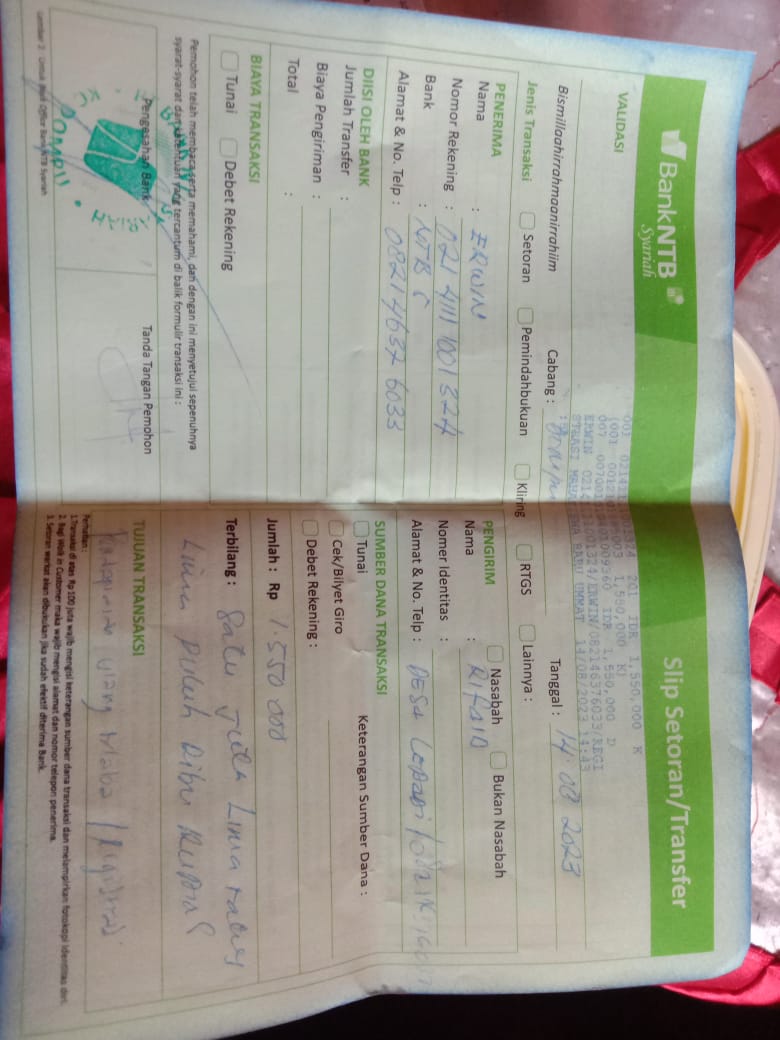 BankNTB
Syariah
Slip Setoran/Transfer
VALIDASI
201 IDR 1,550,000 K
1,550,000 K)
IDR 1,550,000 D
ERWIN/082146376033/REGI
14/08/2023 14:43
Bismillaahirrahmaanirrahiim
Cabang :
Tanggal : 14.08 2023
Jenis Transaksi
Setoran
Pemindahbukuan
Kliring
RTGS
Lainnya :
PENERIMA
Nama : ERWIN
Nomor Rekening : 021 4111 001 324
Bank : NTB S
Alamat & No. Telp : 0821 4637 6033
PENGIRIM
Nasabah
Bukan Nasabah
Nama :
Nomer Identitas :
Alamat & No. Telp : DESA
DIISI OLEH BANK
Jumlah Transfer :
Biaya Pengiriman :
Total :
SUMBER DANA TRANSAKSI
Tunai
Cek/Bilyet Giro
Debet Rekening :
Keterangan Sumber Dana :
BIAYA TRANSAKSI
Tunai
Debet Rekening
Jumlah : Rp 1.550 000
Terbilang : Satu Juta Lima ratus
Lima Puluh Ribu Rupiah
Pemohon telah membaca serta memahami, dan dengan ini menyetujui sepenuhnya
syarat-syarat dan ketentuan yang tercantum di balik formulir transaksi ini :
Pengesahan Bank
Tanda Tangan Pemohon
DOMPU
TUJUAN TRANSAKSI
Perhatian :
1.Transaksi di atas Rp 100 juta wajib mengisi keterangan sumber dana transaksi dan melampirkan fotokopi identitas diri.
2. Bagi Walk in Customer maka wajib mengisi alamat dan nomor telepon penerima.
3. Setoran warkat akan dibukukan jika sudah efektif diterima Bank.
Lembar 2 : Untuk Back Office Bank NTB Syariah